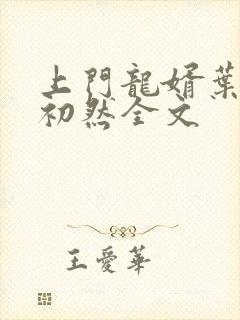 上門龍婿葉
初然全文
王愛華